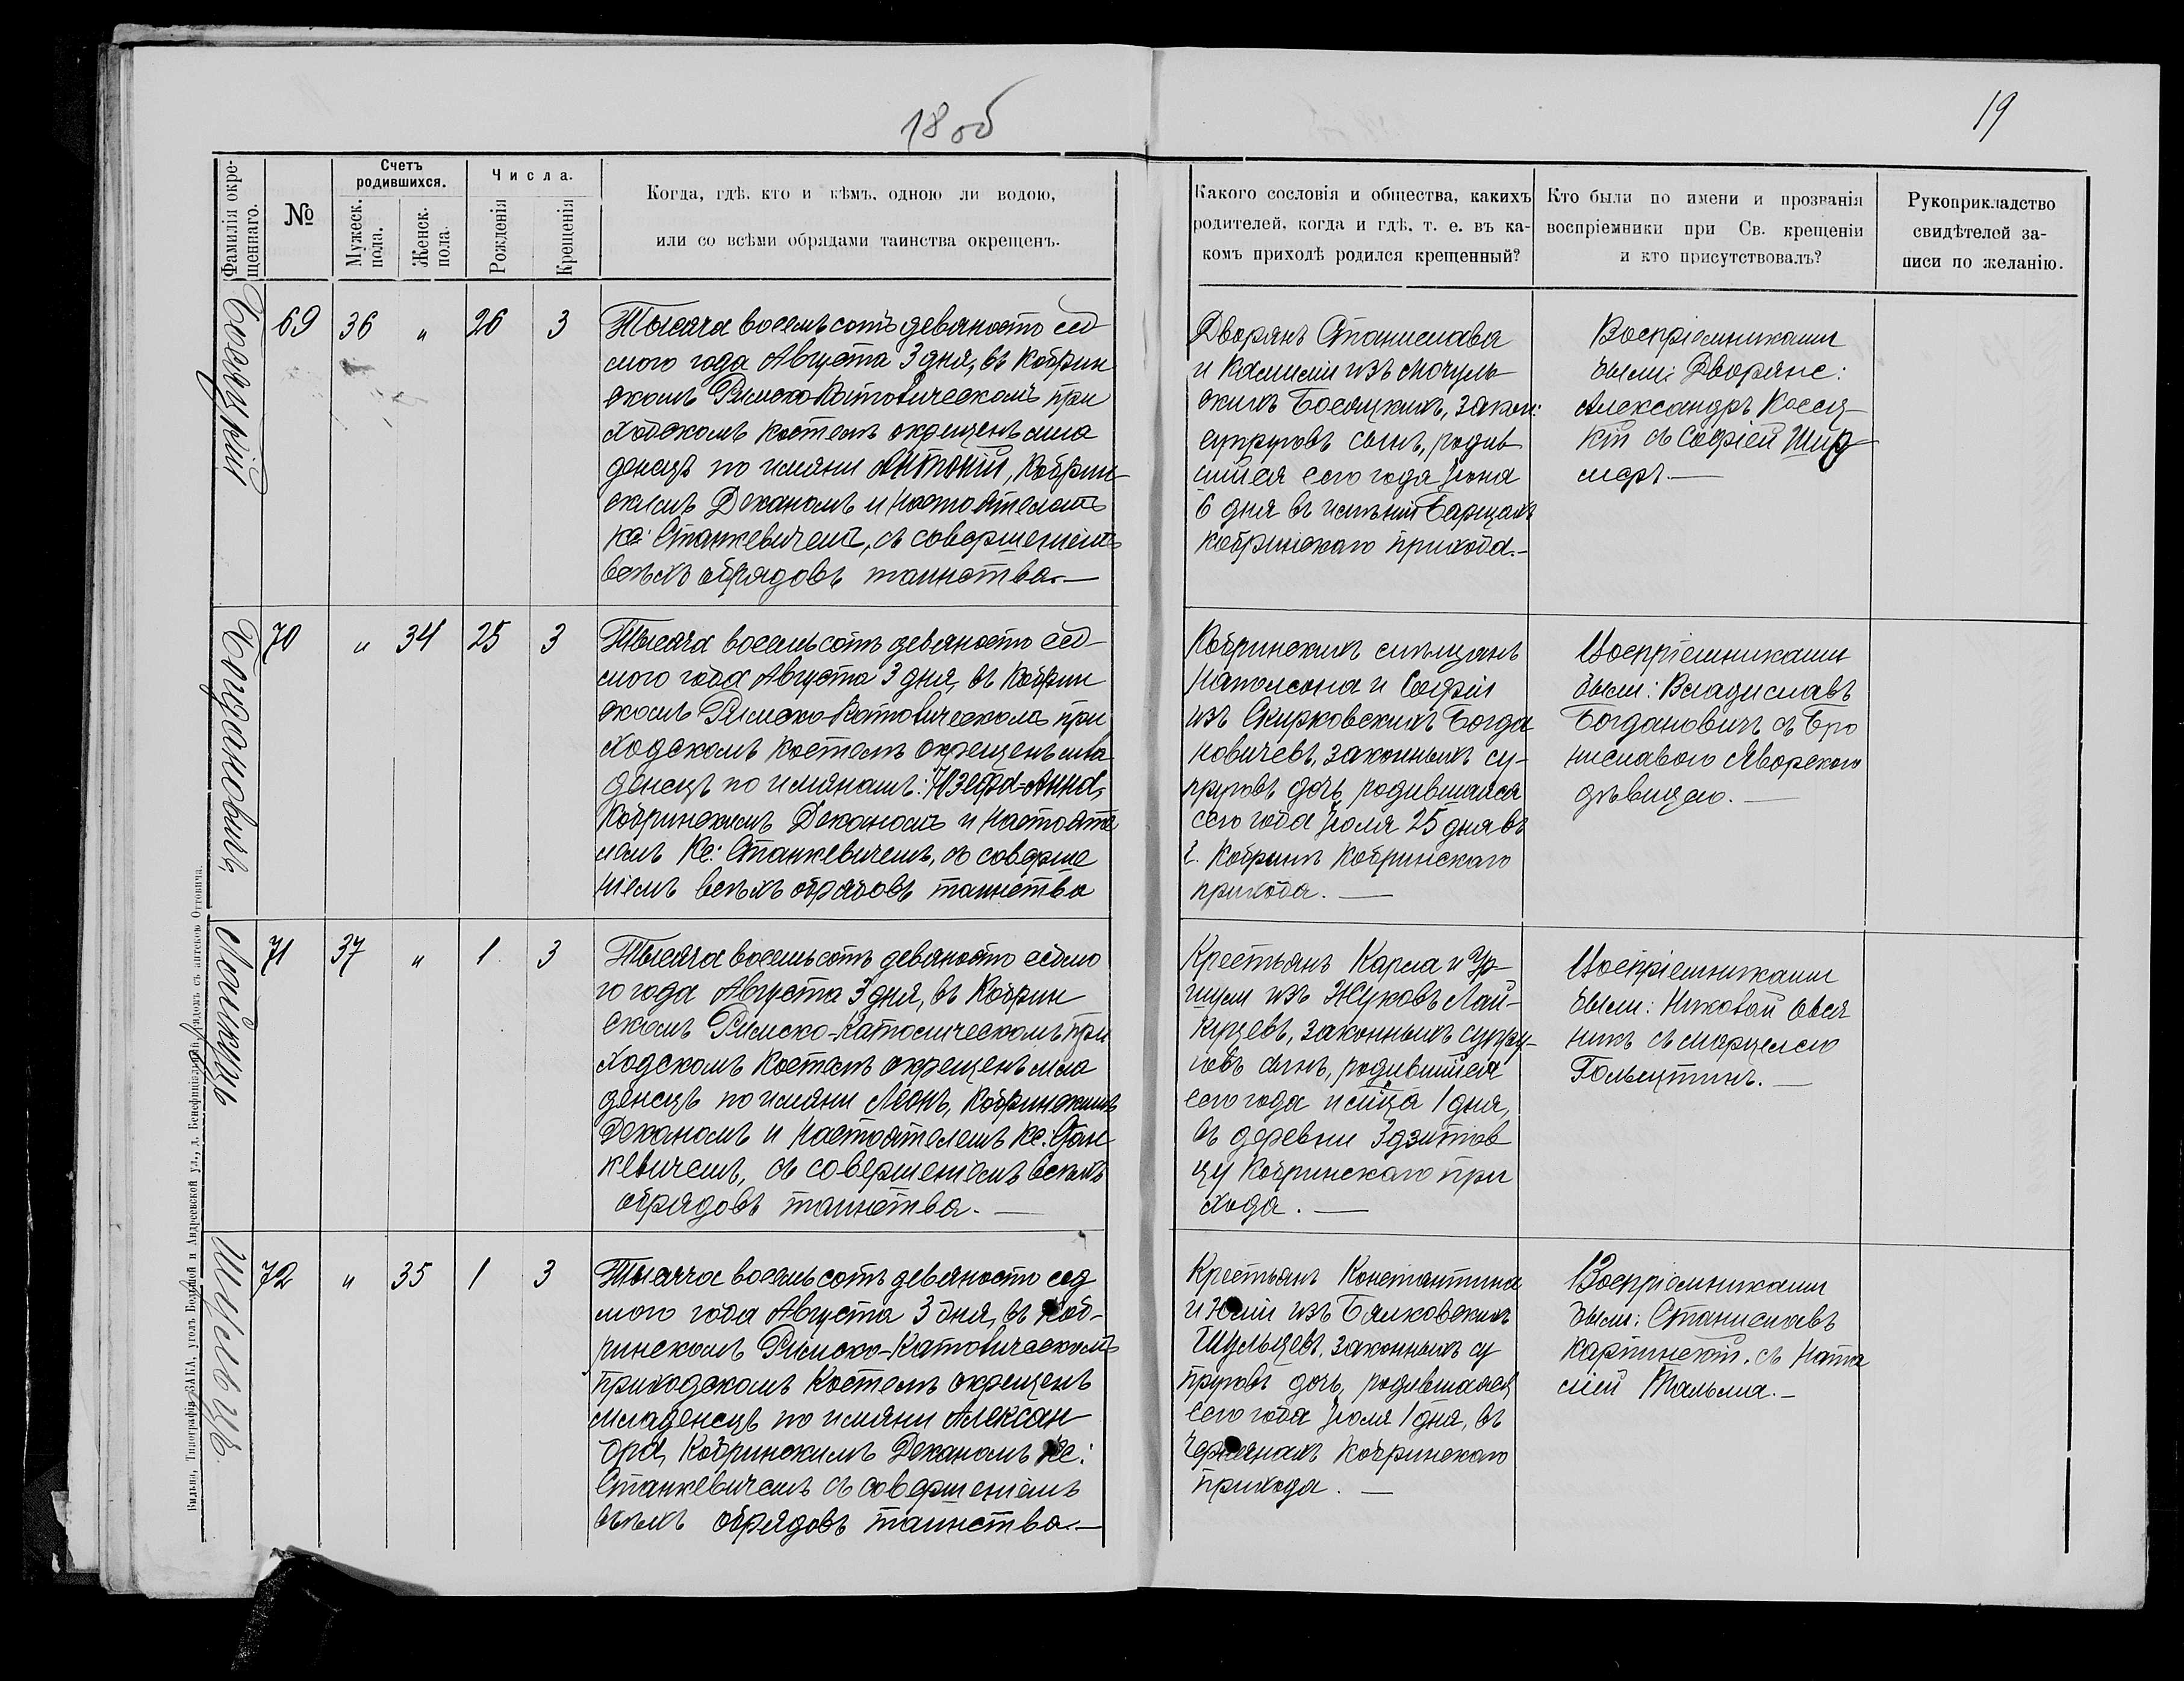 18 об
19
Фамилія окре-
щеннаго.
№
Счетъ
родившихся.
Мужеск.
пола.
Женск.
пола.
Числа.
Рожденія
Крещенія
Когда, гдѣ, кто и кѣмъ, одною ли водою,
или со всѣми обрядами таинства окрещенъ.
Какого сословія и общества, какихъ
родителей, когда и гдѣ, т. е. въ ка-
комъ приходѣ родился крещенный?
Кто были по имени и прозванія
воспріемники при Св. крещеніи
и кто присутствовалъ?
Рукоприкладство
свидѣтелей за-
писи по желанію.
Босяцкій
69 36 „ 26 3
Тысяча восемьсотъ девяносто сед
мого года Августа 3 дня, въ Кобрин
скомъ Римско-Католическомъ при
ходскомъ костелѣ окрещенъ мла
денецъ по имяни Антоній, Кобрин-
скимъ Деканомъ и Настоятелемъ
Кс: Станкевичемъ, съ совершеніемъ
всѣхъ обрядовъ таинства.—
Дворянъ Станислава
и Камиліи изъ Мочуль
скихъ Босяцкихъ, закон:
супруговъ сынъ, родив
шійся сего года Іюня
6 дня въ имѣніи Барщахъ
Кобринскаго прихода.-
Воспріемниками
были: Дворяне:
Александръ Косец-
кій съ Софіей
Богдановичъ
70 „ 34 25 3
Тысяча восемьсотъ девяносто сед-
мого года Августа 3 дня, въ Кобрин
скомъ Римско-Католическомъ при
ходскомъ костелѣ окрещенъ мла
денецъ по имянамъ: Іозефа-Анна,
Кобринскимъ Деканомъ и Настояте
лемъ Кс: Станкевичемъ, съ соверше
ніемъ всѣхъ обрядовъ таинства
Кобринскихъ мѣщанъ
Наполеона и Софіи
изъ Скирковскихъ Богда
новичевъ, законныхъ су-
пруговъ дочь, родившаяся
сего года Іюля 25 дня въ
г. Кобринѣ Кобринскаго
прихода.—
Воспріемниками
были: Владиславъ
Богдановичъ съ Бро
ниславою Яворского
дѣвицею.—
Лойцуцъ
71 37 „ 1 3
Тысяча восемьсотъ девяносто седмо
го года Августа 3 дня, въ Кобрин
скомъ Римско-Католическомъ при
ходскомъ костелѣ окрещенъ мла
денецъ по имяни Леонъ, Кобринскимъ
Деканомъ и Настоятелемъ Кс. Стан
кевичемъ, съ совершеніемъ всѣхъ
обрядовъ таинства.—
Крестьянъ Карла и Ур-
шули изъ Жуковъ Лай-
куцевъ, законныхъ супру-
говъ сынъ, родившійся
сего года и мца 1 дня,
въ деревни Здзитов
цу Кобринскаго при
хода.—
Воспріемниками
были:
никъ съ Марцелею
Шульцъ
72 „ 35 1 3
Тысяча восемьсотъ девяносто сед
мого года Августа 3 дня, въ Коб-
ринскомъ Римско-Католическомъ
приходскомъ Костелѣ окрещенъ
младенецъ по имяни Алексан-
дра, Кобринскимъ Деканомъ Кс:
Станкевичемъ съ совершеніемъ
всѣхъ обрядовъ таинства.—
Крестьянъ Константина
и Юліи изъ Бялковскихъ
Шульцевъ, законныхъ су
пруговъ дочь, родившаяся
сего года Іюля 1 дня, въ
Кобринскаго
прихода.—
Воспріемниками
были: Станиславъ
Карпинскій, съ Ната
ліей Тальма.-